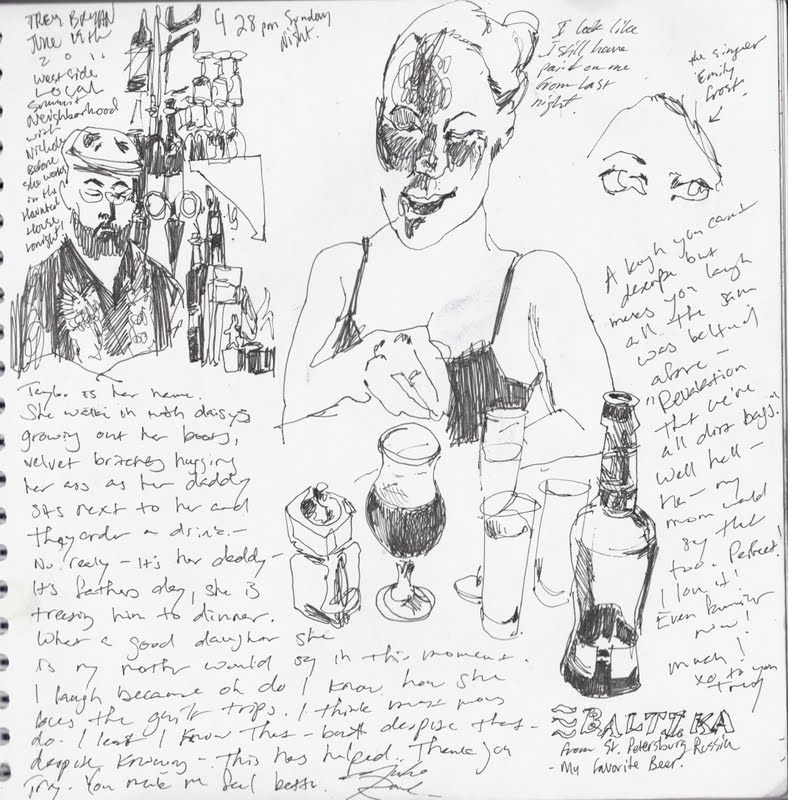 TREY BRYAN
June 19th
2011
West Side
LOCAL
Summit
Neighborhood
with
Nichole
Before
she works
in the
Haunted
House
tonight!
4 28 pm Sunday
Night.
I look like
I still have
paint on me
from last
night.
the singer
Emily
Frost.
A laugh you can't
but
makes you laugh
all the same
was behind
above –
"Revelation
that we're
all dirt bags."
Well hell –
my
mom would
say that
too. Perfect!
I love it!
Even
now!
much!
xo to you
Trey
Taylor is her name.
She walks in with daisys
growing out her boots,
velvet britches hugging
her ass as her daddy
sits next to her and
they order a drink. –
No really – it's her daddy –
It's fathers day, she is
treating him to dinner.
What a good daughter she
is my mother would say in this moment.
I laugh because oh do I know how she
loves the guilt trips. I think most moms
do. I least I know this – but despite that –
despite knowing – this has helped. Thank you
Trey. You made me feel better.
BALTIKA
from St. Petersburg Russia
- My Favorite Beer.